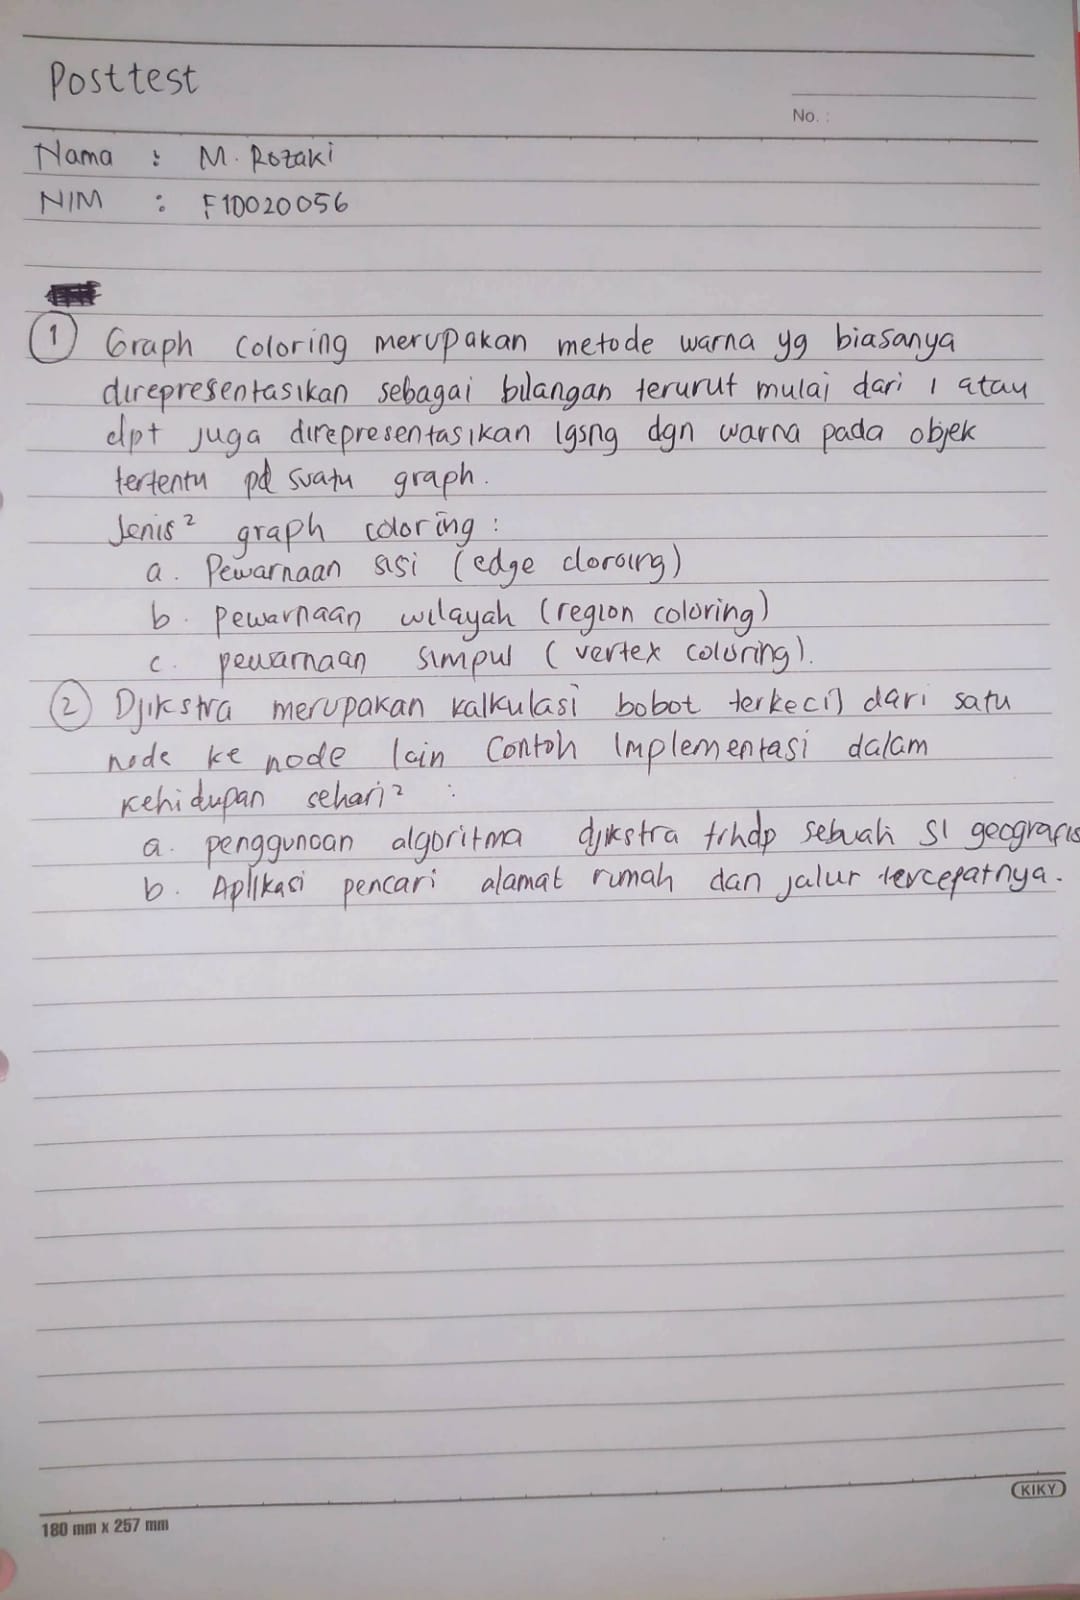 Posttest
No. :
Nama : M. Rozaki
NIM : F10020056
1 Graph coloring merupakan metode warna yg biasanya
direpresentasikan sebagai bilangan terurut mulai dari 1 atau
dpt juga direpresentasikan lgsng dgn warna pada objek
tertentu pd suatu graph.
Jenis² graph coloring :
a. Pewarnaan sisi (edge cloroing)
b. pewarnaan wilayah (region coloring)
c. pewarnaan simpul (vertex coloring).
2 Djikstra merupakan kalkulasi bobot terkecil dari satu
node ke node lain Contoh Implementasi dalam
kehidupan sehari² :
a. penggunaan algoritma djikstra trhdp sebuah SI geografis
b. Aplikasi pencari alamat rumah dan jalur tercepatnya.
KIKY
180 mm x 257 mm